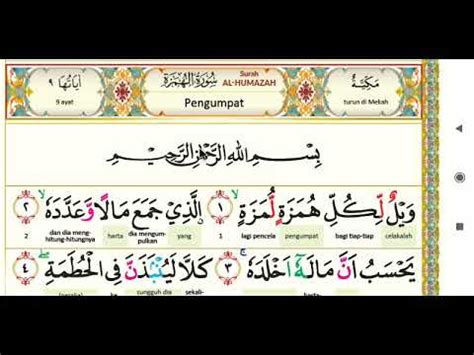 مَكِيَّةٌ سُوْرَةُ الْهُمَزَةِ Surah AL-HUMAZAH اٰيَاتُهَا ٩
turun di Mekah Pengumpat 9 ayat
بِسْمِ اللّٰهِ الرَّحْمٰنِ الرَّحِيْمِ
وَيْلٌ لِّكُلِّ هُمَزَةٍ لُّمَزَةٍۙ ١ الَّذِيْ جَمَعَ مَالًا وَّعَدَّدَهٗۙ ٢
celakalah bagi tiap-tiap pengumpat lagi pencela 1 yang dia mengum-pulkan harta dan dia meng-hitung-hitungnya 2
يَحْسَبُ اَنَّ مَالَهٗٓ اَخْلَدَهٗۚ ٣ كَلَّا لَيُنْۢبَذَنَّ فِى الْحُطَمَةِۖ ٤
harta- sekali- sungguh dia ke